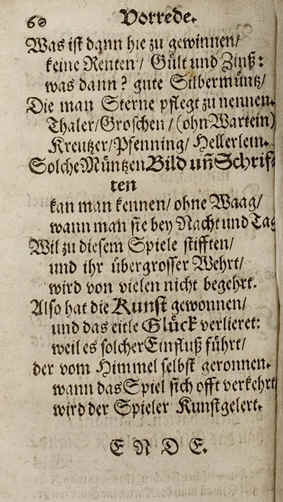 60 Vorrede.
Was ist dann hie zu gewinnen/
keine Renten/ Gült und Zinß:
was dann? gute Silbermüntz/
Die man Sterne pflegt zu nennen.
Thaler/Groschen/(ohn Wartein)
Kreutzer/Pfenning/Hellerlein.
Solche Müntzen Bild uñ Schrif-
ten
kan man kennen/ ohne Waag/
wann man sie bey Nacht und Tag
Wil zu diesem Spiele stifften/
und ihr übergrosser Wehrt/
wird von vielen nicht begehrt.
Also hat die Kunst gewonnen/
und das eitle Glück verlieret:
weil es solcher Einfluß führt/
der vom Himmel selbst geronnen.
wann das Spiel sich offt verkehrt
wird der Spieler Kunstgelert.
ENDE.